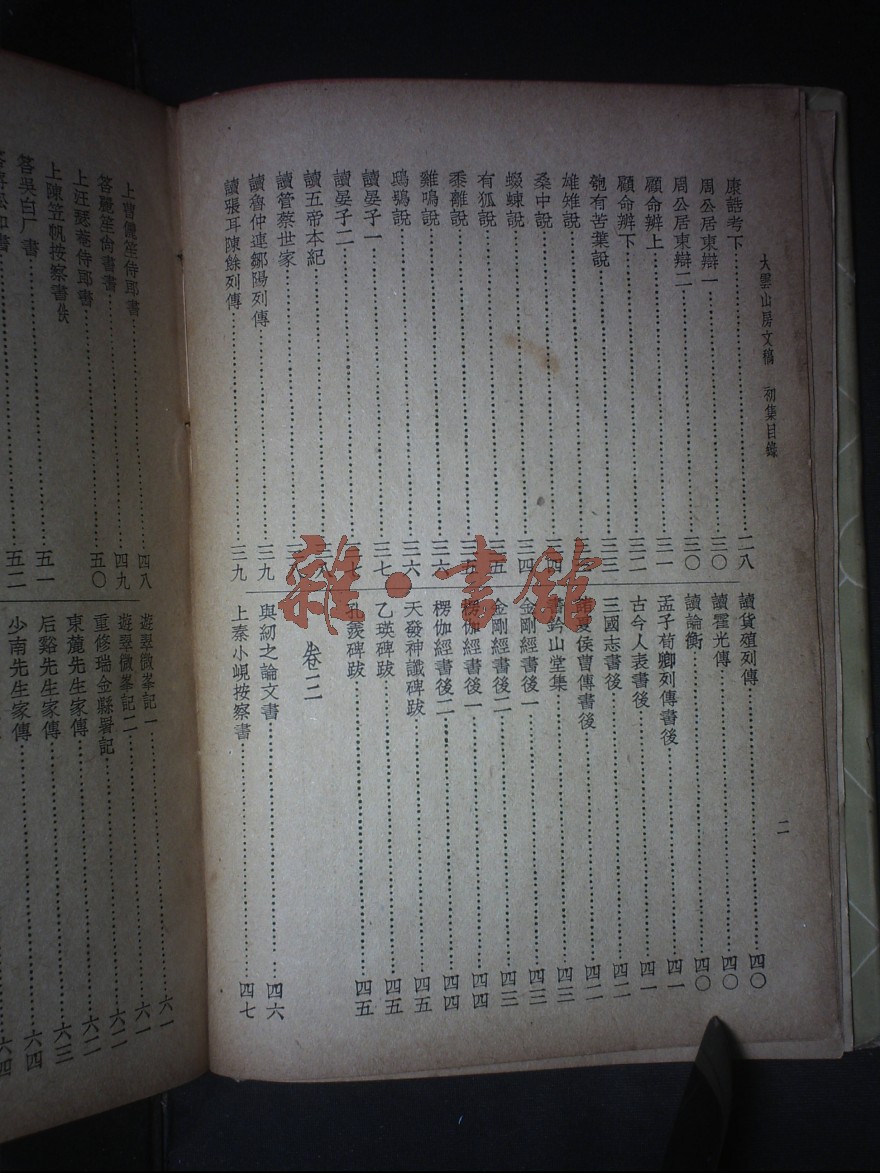 大雲山房文稿 初集目錄
二
康誥考下……二八
周公居東辯一……三〇
周公居東辯二……三〇
顧命辨上……三一
顧命辨下……三二
匏有苦葉說……三三
雄雉說……
桑中說……三四
蝃蝀說……三四
有狐說……三五
黍離說……三五
雞鳴說……三六
鴟鴞說……三六
讀晏子一……三七
讀晏子二……三七
讀五帝本紀……三八
讀管蔡世家……三八
讀魯仲連鄒陽列傳……三九
讀張耳陳餘列傳……三九
讀貨殖列傳……四〇
讀霍光傳……四〇
讀論衡……四〇
孟子荀卿列傳書後……四一
古今人表書後……四一
三國志書後……四二
諸夏侯曹傳書後……四二
書鈐山堂集……四三
金剛經書後一……四三
金剛經書後二……四三
楞伽經書後一……四四
楞伽經書後二……四四
天發神讖碑跋……四五
乙瑛碑跋……四五
孔羨碑跋……四五
卷三
與紉之論文書……四六
上秦小峴按察書……四七
上曹儷笙侍郎書……四八
答儷笙尚書書……四九
上汪瑟菴侍郎書……五〇
上陳笠帆按察書佚……五一
答吳白厂書……五二
遊翠微峯記一……六一
遊翠微峯記二……六一
重修瑞金縣署記……六二
東麓先生家傳……六二
后谿先生家傳……六三
少南先生家傳……六四
六四
雜·書館